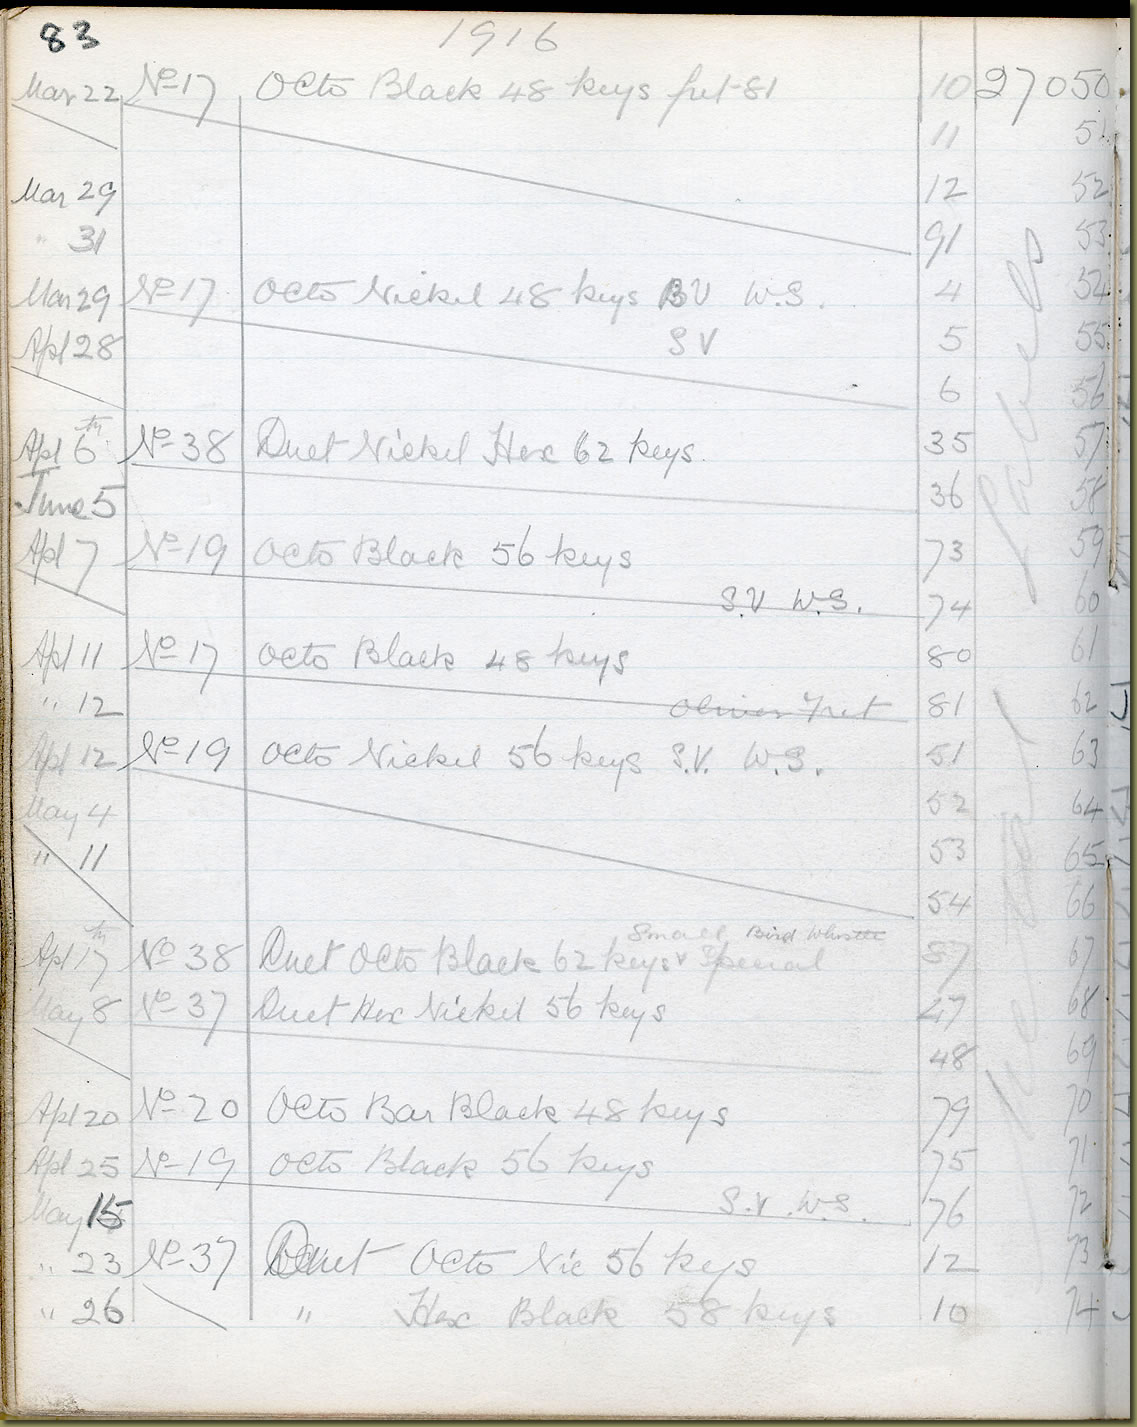 83 1916
Mar 22 No 17 Octo Black 48 keys fret 81 10 27050
11 51
Mar 29 12 52
" 31 91 53
Mar 29 No 17 Octo Nickel 48 keys BV W.S. 4 54
Apl 28 SV 5 55
6 56
Apl 6th No 38 Duet Nickel Hex 62 keys. 35 57
June 5 36 58
Apl 7 No 19 Octo Black 56 keys 73 59
S.V W.S. 74 60
Apl 11 No 17 Octo Black 48 keys 80 61
" 12 Oliver Fret 81 62
Apl 12 No 19 Octo Nickel 56 keys S.V. W.S. 51 63
May 4 52 64
" 11 53 65
54 66
Small Bird Whistle
Apl 17th No 38 Duet Octo Black 62 keys Special 57 67
May 8 No 37 Duet Hex Nickel 56 keys 47 68
48 69
Apl 20 No 20 Octo Bar Black 48 keys 79 70
Apl 25 No 19 Octo Black 56 keys 75 71
May 15 S.V. W.S. 76 72
" 23 No 37 Duet Octo Nic 56 keys 12 73
" 26 " Hex Black 58 keys 10 74